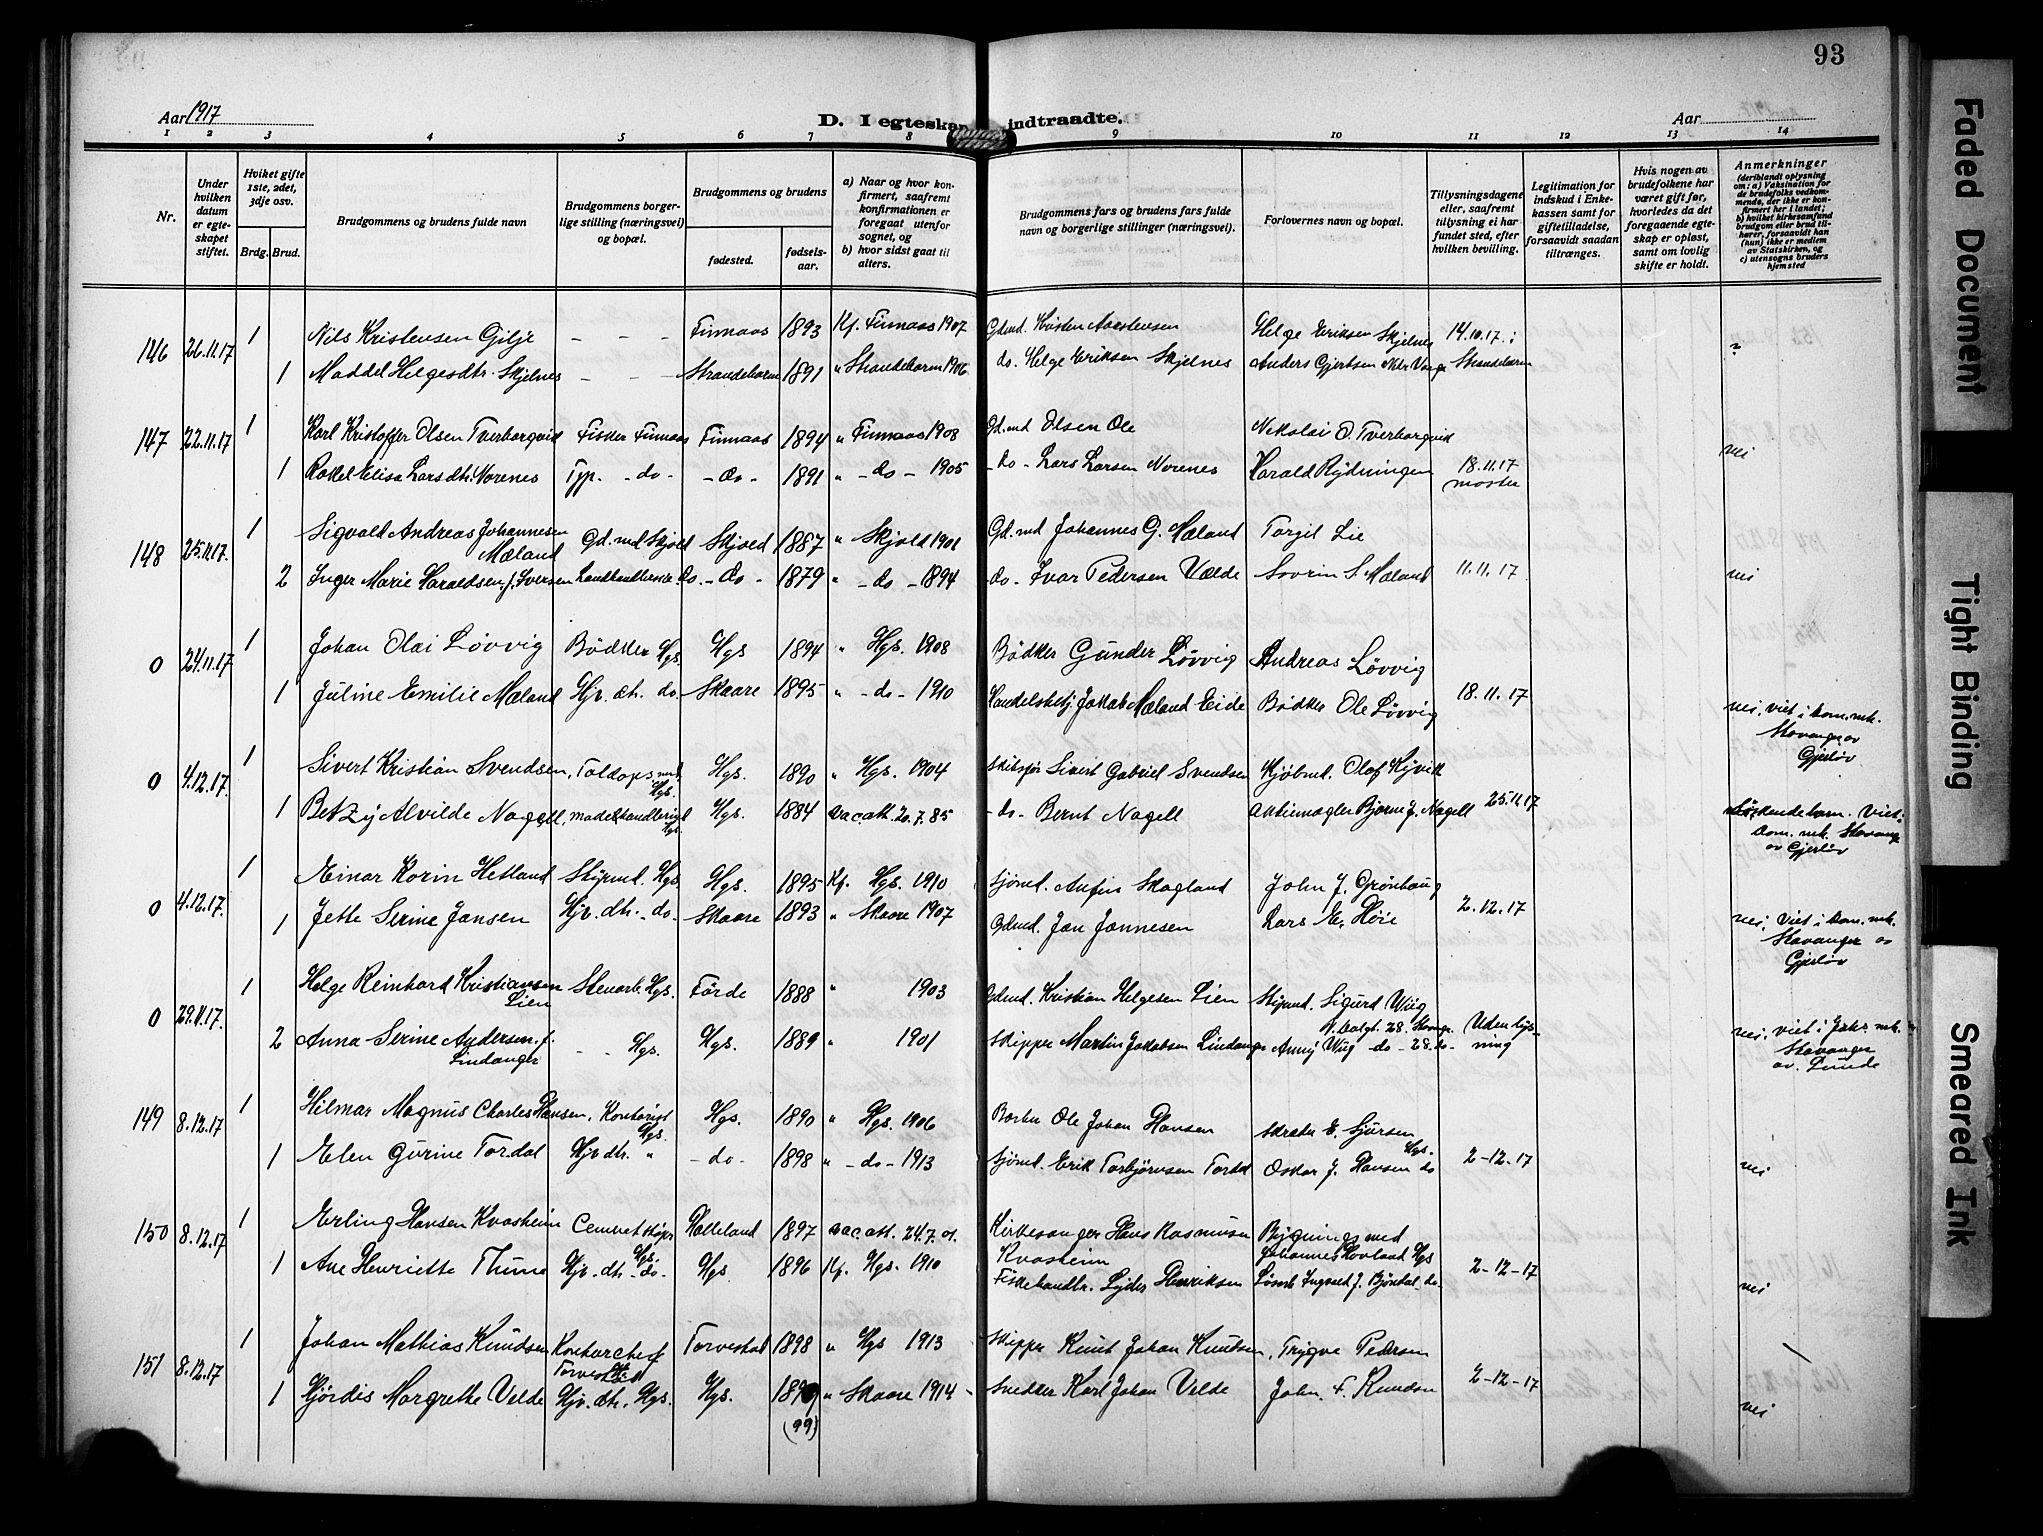 93
Aar 1917
D. I egteskap indtraadte.
Aar
1 2 3 4 5 6 7 8 9 10 11 12 13 14
Nr.
Under hvilken datum er egteskapet stiftet.
Hvilket gifte 1ste, 2det, 3dje osv.
Brdg. Brud.
Brudgommens og brudens fulde navn
Brudgommens borgerlige stilling (næringsvei) og bopæl.
Brudgommens og brudens
fødested.
fødselsaar.
a) Naar og hvor konfirmert, saafremt konfirmationen er foregaat utenfor sognet, og
b) hvor sidst gaat til alters.
Brudgommens fars og brudens fars fulde navn og borgerlige stillinger (næringsvei).
Forlovernes navn og bopæl.
Tillysningsdagene eller, saafremt tillysning ei har fundet sted, efter hvilken bevilling.
Legitimation for indskud i Enkekassen samt for giftetilladelse, forsaavidt saadan tiltrænges.
Hvis nogen av brudefolkene har været gift før, hvorledes da det foregaaende egteskap er opløst, samt om lovlig skifte er holdt.
Anmerkninger
(deriblandt oplysning om: a) Vaksination for de brudefolks vedkommende, der ikke er konfirmert her i landet; b) hvilket kirkesamfund brudgom eller brud tilhører, forsaavidt han (hun) ikke er medlem av Statskirken, og c) utensogns bruders hjemsted
146 26.11.17 1 Nils Kristensen Gilje - - - Finnaas 1893 Kf. Finnaas 1907 Gdmd. Kristen Aarstensen Helge Eriksen Skjelnes 14.10.17 i
1 Maddel Helgesdtr. Skjelnes - - - Strandebarm 1891 " Strandebarm 1906 do. Helge Eriksen Skjelnes Anders Gjertsen Strandebarm ?
147 22.11.17 1 Karl Kristoffer Olsen Tverborgvik Fisker Finnaas Finnaas 1894 " Finnaas 1908 Gd.md Olsen Ole Nikolai O. Tverborgvik
1 Rakel Elisa Larsdtr. Norenes Tyv. - do - - do - 1891 " - do - 1905 - do - Lars Larsen Norenes Harald Rydningen 18.11.17 moster nei
148 25.11.17. 1 Sigvald Andreas Johannesen Mæland Gd.md Skjold Skjold 1887 " Skjold 1901 Gd.md Johannes G. Mæland Torgil Lie
2 Inger Marie Haraldsen f. Iversen Landhandlerske do. - do - 1879 " - do - 1894 do - Ivar Pedersen Vælde Sovrin S. Mæland 11.11.17 nei
0 24.11.17 1 Johan Olai Løvvig Bødker Hgs. Hgs 1894 " Hgs. 1908 Bødker Gunder Løvvig Andreas Løvvig
1 Juline Emilie Mæland Hjv. dtr. do. Skaare 1895 " - do - 1910 Handelsbetj. Jakob Mæland Eide Bødker Ole Løvvig 18.11.17 nei, viet i dom. mk. Stavanger av Gjerløv
0 4.12.17. 1 Sivert Kristian Svendsen, Toldops.md. Hgs. Hgs. 1890 " Hgs. 1904 Skibsfør Sivert Gabriel Svendsen Kjøbmd. Olaf Kyvik
1 Betzy Alvilde Nagell, modehandlerske Hgs. Hgs. 1884 vac.att. 20.7.85 - do - Bernt Nagell Aktiemægler Bjarne J. Nagell 25.11.17 Søskendebarn. Viet i dom. mk. Stavanger av Gjerløv
0 4.12.17. 1 Einar Korin Hetland Skipmd. Hgs. Hgs. 1895 Kf. Hgs. 1910 Sjømd. Anfin Skogland John J. Grønhaug
1 Jette Serine Jansen Hjv. dtr. - do - Skaare 1893 " Skaare 1907 Gdmd. Jan Jannesen Lars E. Høie 2.12.17 nei, viet i dom. mk. Stavanger av Gjerløv
0 29.11.17. 1 Helge Reinhard Kristiansen Lien Stenarb. Hgs. Førde 1888 " 1903 Gdmd. Kristian Helgesen Lien Skipmd. Sigurd Wiig
2 Anna Serine Andersen f. Lindanger - - Hgs. Hgs. 1889 " 1901 Skipper Martin Jakobsen Lindanger Anny Wiig - do - 28. do - Uden lysning nei, viet i Jakr. mk. Stavanger av. Lunde
149 8.12.17 1 Hilmar Magnus Charles Hansen, Kontorist Hgs. Hgs. 1890 " Hgs. 1906 Ole Johan Hansen Skræder E. Sjursen Hgs.
1 Elen Gurine Tordal Hjv. dtr. " - do - 1898 " - do - 1913 Sjømd. Erik Torbjørnsen Tordal Oskar J. Hansen do 2-12-17 nei
150 8.12.17 1 Erling Hansen Kvasheim Cementstøper Hgs. Helleland 1897 vac.att. 24.7.01. Kirkesanger Hans Rasmusen Kvasheim Bygningsmd Johannes Hovland Hgs
1 Ane Henriette Thune Hjv. dtr. - do - Hgs 1896 Kf. Hgs. 1910 Fiskehandlr. Lyder Henriksen Ingvald J. Bjørdal do. 2-12-17 nei
151 8.12.17 1 Johan Mathias Knudsen Kontorchef Torvestad Torvestad 1898 " Hgs 1913 Skipper Knut Johan Knutsen, Trygve Pedersen
1 Hjørdis Margrethe Velde Hjv. dtr. Hgs. Hgs. 1899 (99) " Skaare 1914 - Snedker Karl Johan Velde John F. Knudsen 2-12-17 nei
Faded Document
Tight Binding
Smeared Ink